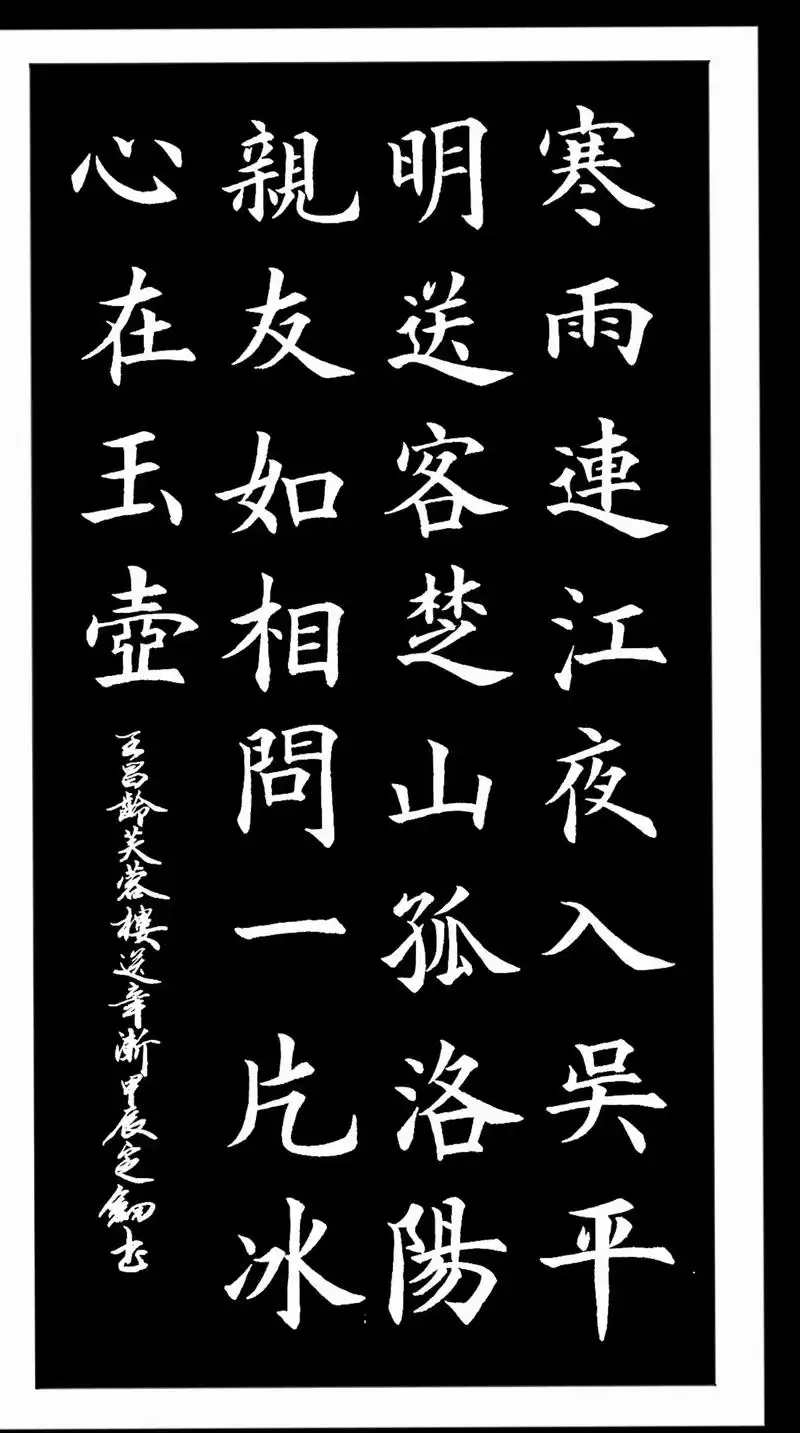 寒雨連江夜入吳平
明送客楚山孤洛陽
親友如相問一片冰
心在玉壺
王昌齡芙蓉樓送辛漸甲辰定劍书